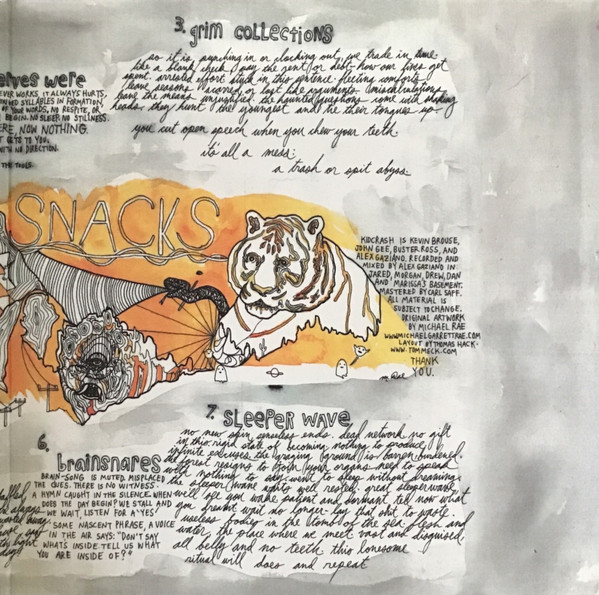 3. grim collections
so it is, punching in or clocking out, we trade in time
like a blank check. pay the rent or debt-how our lives get
spent. arrested effort stuck in this sentence. fleeting comforts
leave seasons scorned or lost like arguments. (miscalculations
have the means unjustified. the haunted questions come with shaking
heads. they hunt the youngest and tie their tongues up.
you cut open speech when you shew your teeth.
it's all a mess:
a trash or spit abyss.
elves were
EVER WORKS, IT ALWAYS HURTS,
SYLLABLES IN FORMATION,
YOUR WORDS, NO RESPITE, OR
BEGIN. NO SLEEP. NO STILLNESS.
ERE, NOW NOTHING.
T GETS TO YOU,
WITH NO DIRECTION.
THE TOOLS.
SNACKS
KIDCRASH IS KEVIN BROUSE,
JOHN GEE, BUSTER ROSS, AND
ALEX GAZIANO. RECORDED AND
MIXED BY ALEX GAZIANO IN
JARED, MORGAN, DREW, DAN
AND MARISSA'S BASEMENT.
MASTERED BY CARL SAFF.
ALL MATERIAL IS
SUBJECT TO CHANGE.
ORIGINAL ARTWORK
BY MICHAEL RAE
WWW.MICHAELGARRETTRAE.COM
LAYOUT BY THOMAS HACK.
WWW.TOMMECK.COM
THANK
YOU.
m. Rae
6.
brainsnares
BRAIN-SONG IS MUTED, MISPLACED
THE CUES. THERE IS NO WITNESS.
A HYMN CAUGHT IN THE SILENCE. WHEN
DOES THE DAY BEGIN? WE STALL AND
WE WAIT, LISTEN FOR A "YES"
SOME NASCENT PHRASE, A VOICE
IN THE AIR SAYS: "DON'T SAY
WHATS INSIDE. TELL US WHAT
YOU ARE INSIDE OF?"
7. SLEEPER WAVE
no new skin, senseless ends. dead network no gift
in this rigid state of becoming nothing to produce,
infinite excuses the grazing ground is barren, burdened.
forest resigns to both your organs need to spend
with nothing to say. went to sleep without dreaming
the sleeper wave as to well rested. great sleeper wave,
will see you wake patient and dormant tell now what
you dreamt wait no longer lay that shit to waste.
useless bodies in the womb of the sea. flesh and
water, the place where we meet vast and disguised
all belly and no teeth this lonesome
ritual will does and repeat